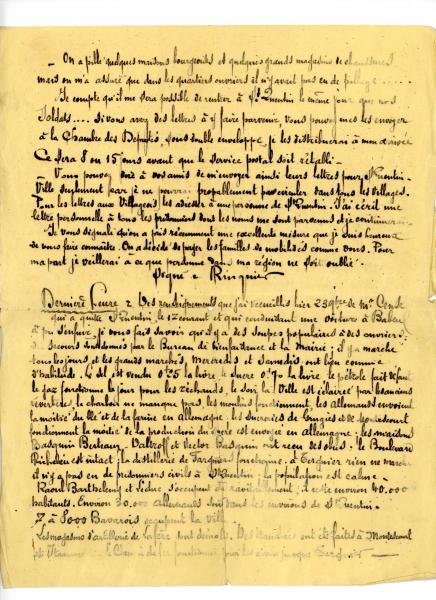 - On a pillé quelques maisons bourgeoises et quelques grands magasins de chaussures
mais on m'a assuré que dans les quartiers ouvriers il n'y avait pas eu de pillage.....
Je compte qu'il me sera possible de rentrer à St Quentin le même jour que nos
Soldats.... Si vous avez des lettres à y faire parvenir vous pouvez me les envoyer
à la Chambre des Députés, sous double enveloppe, je les distribuerai à mon arrivée
Ce sera 8 ou 15 jours avant que le Service postal soit rétabli -
- Vous pouvez dire à vos amis de m'envoyer ainsi leurs lettres pour St Quentin -
Ville seulement car je ne pourrai probablement pas circuler dans tous les villages.
Pour les lettres aux Villageois les adresser à une personne de St Quentin. J'ai écrit une
lettre personnelle à tous les prisonniers dont les noms me sont parvenus et je continuerai
- Je vous signale qu'on a pris récemment une excellente mesure que je suis heureux
de vous faire connaître. On a décidé de payer les familles de mobilisés comme vous. Pour
ma part je veillerai à ce que personne dans ma région ne soit oublié -
Signé = Ringuier
Dernière heure = Des renseignements que j'ai recueillis hier 23 de Mr
qui a quitté St Quentin, le 12 courant et qui conduisait une voiture à
à pu s'enfuir, je vous fais savoir qu'il y a des soupes populaires à des ouvriers
Secours sont donnés par le Bureau de bienfaisance et la Mairie; il y a marché
tous les jours et les grands marchés, Mercredis et Samedis ont lieu comme
d'habitude. Le sel est vendu 0f25 la livre le sucre 0,70 la livre le pétrole fait défaut
le gaz fonctionne le jour pour les réchauds, le soir la Ville est éclairée par les
réverbères, le charbon ne manque pas les moulins fonctionnent les Allemands envoient
la moitié du blé et de la farine en Allemagne. les sucreries de et de Montescourt
fonctionnent la moitié de la production du sucre est envoyée en Allemagne;
Basquin et Hector Basquin ont reçu des obus. le Boulevard
Richelieu est intact, la distillerie de fonctionne, à Tergnier rien ne marche
il n'y a pas eu de prisonniers civils à St Quentin; la population est calme -
Raoul Barthelemy et s'occupent du ravitaillement; il reste environ 40.000
habitants. Environ 30.000 Allemands sont dans les environs de St Quentin -
7 à 8000 Bavarois occupent la ville -
Les magasins d'artillerie de La Fère sont démolis. Des tranchées ont été faites à Montescourt
et - Le Chemin de fer fonctionne pour les civils jusque Tergnier -